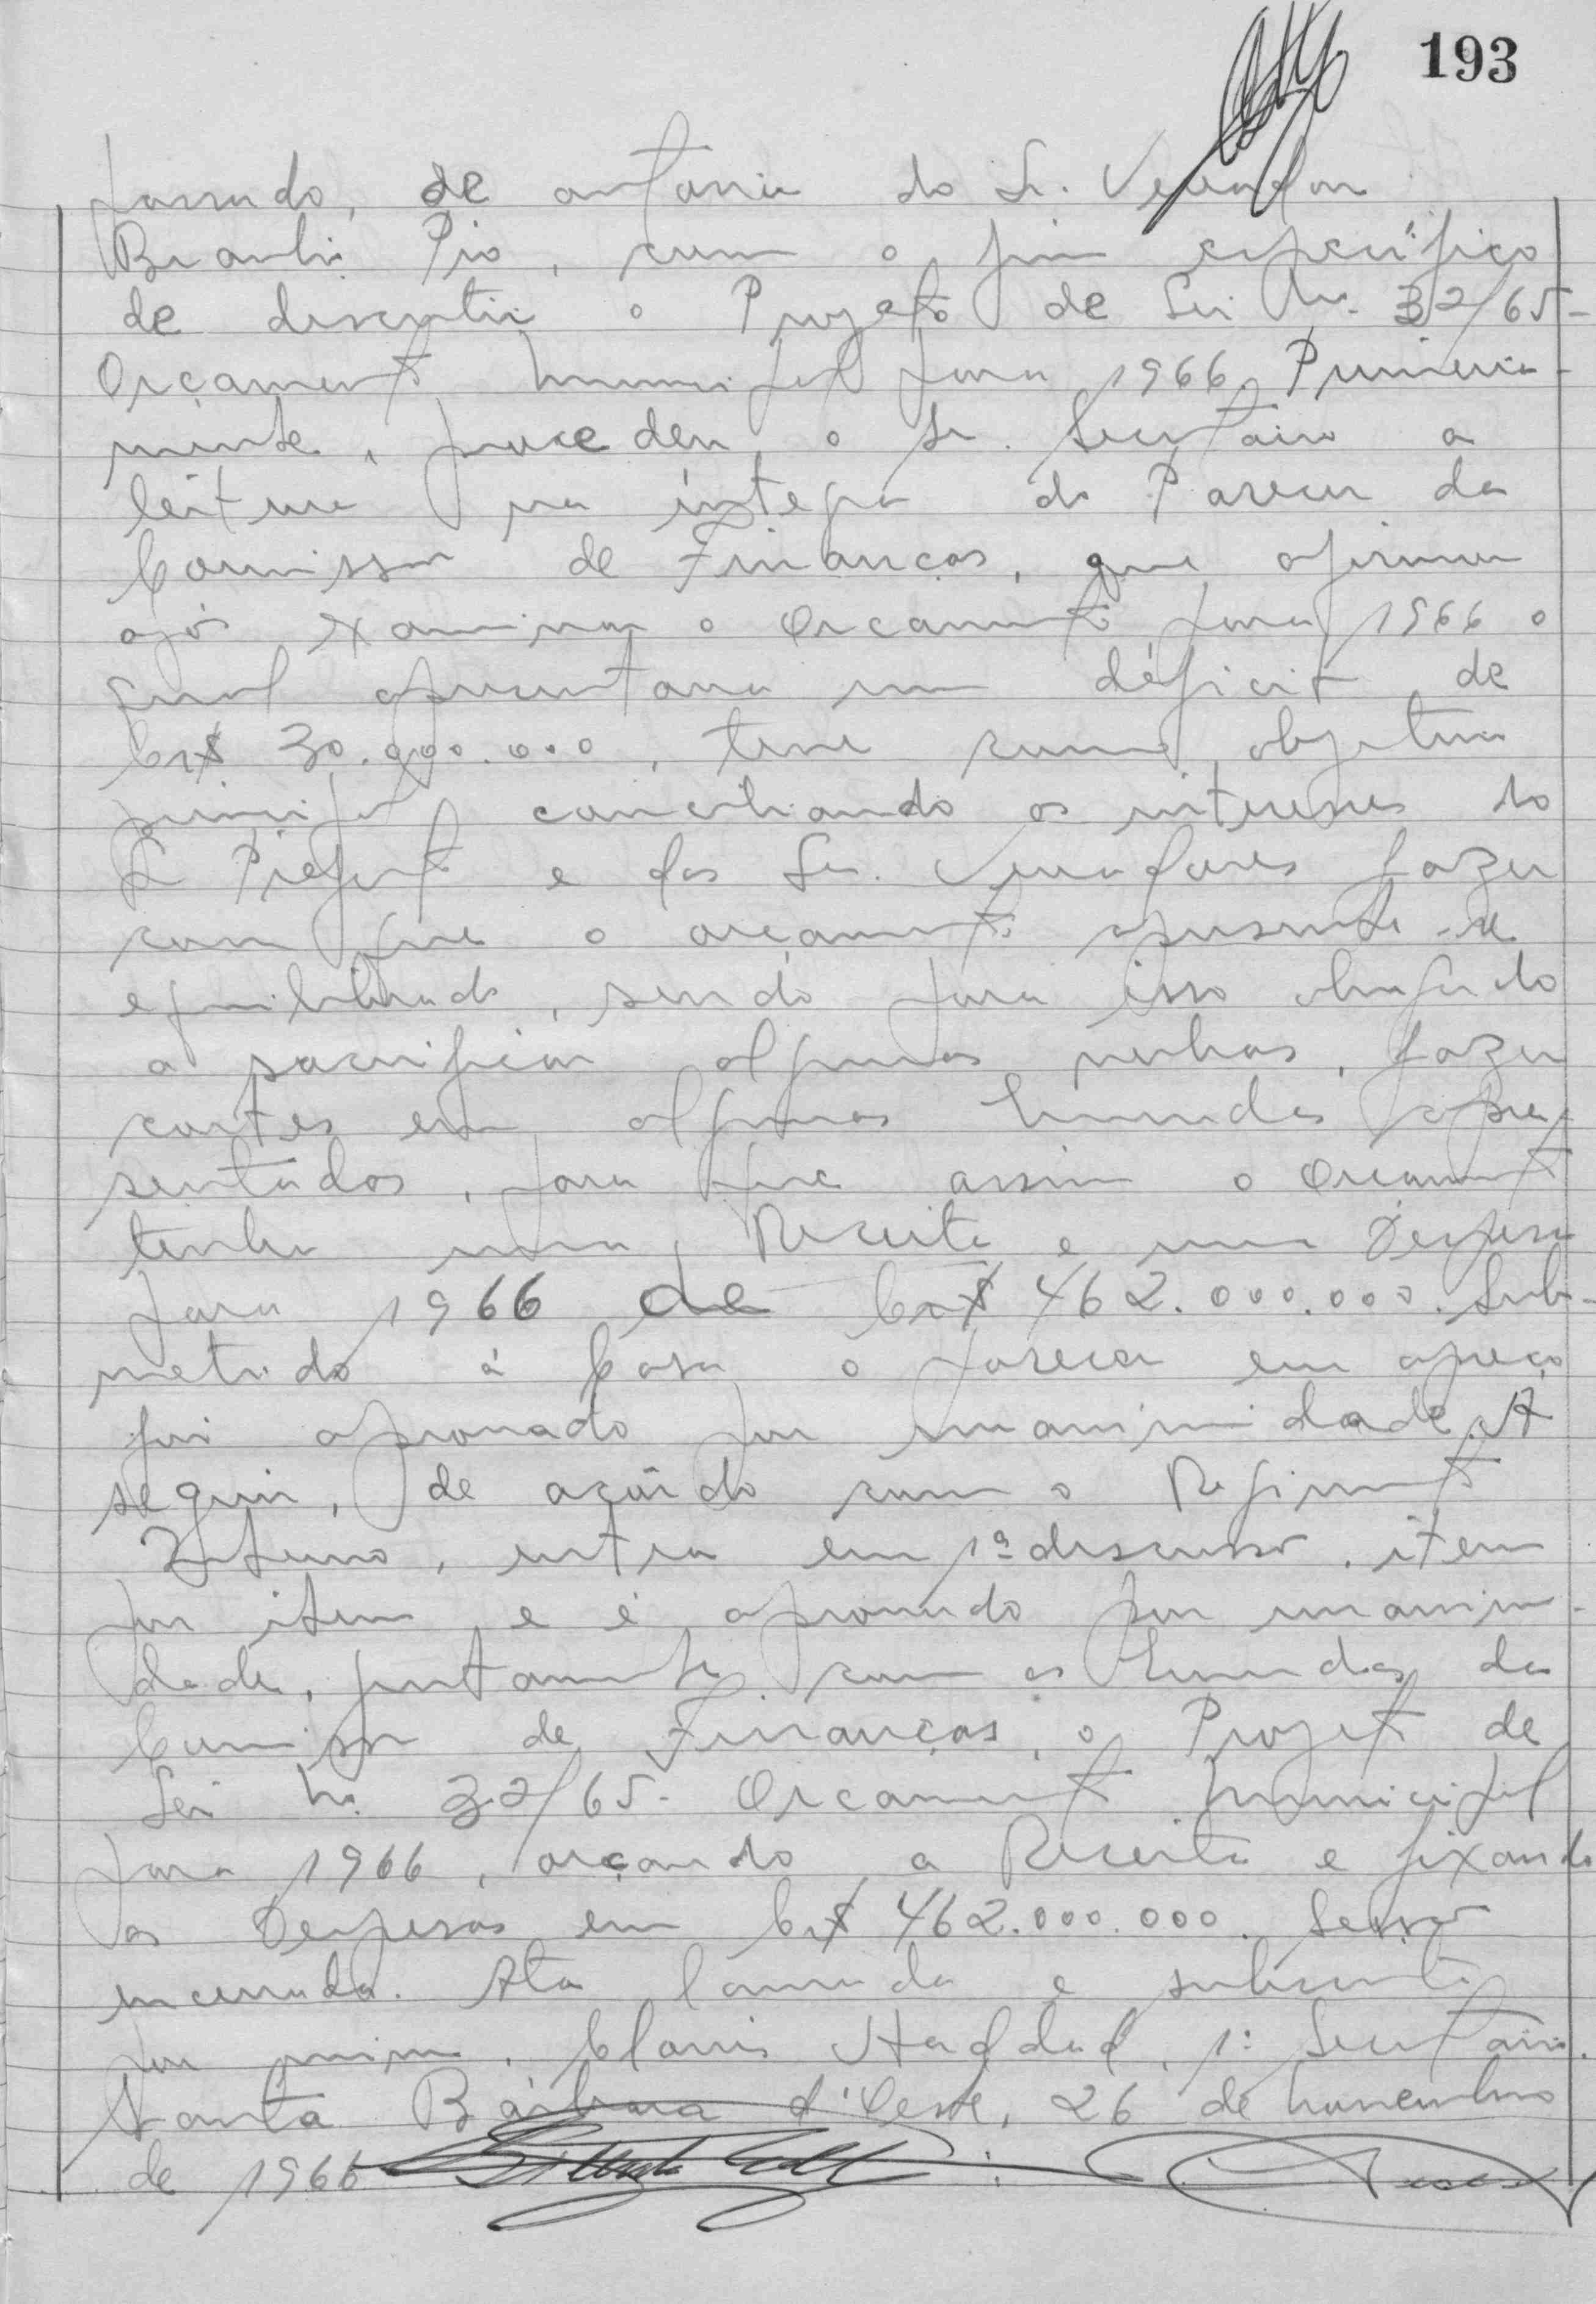 193
passado, de autoria do Sr. Vereador
Braulio Pio, com o fim especifico
de discutir o Projeto de Lei No. 32/65-
Orçamento Municipal para 1966. Primeira-
mente, procedeu o Sr. Secretário a
leitura na íntegra do Parecer da
Comissão de Finanças, que afirmou
após examinar o Orçamento para 1966 o
qual apresentava um déficit de
Cr$ 30.000.000, teve como objetivo
principal conciliando os interesses do
Sr Prefeito e dos Srs. Vereadores fazer
com que o orçamento apresente-se
equilibrado, sendo para isso obrigado
a sacrificar algumas verbas, fazer
cortes em algumas Emendas apre-
sentadas, para que assim o Orçamento
tenha uma Receita e uma Despesa
para 1966 de Cr$ 462.000.000. Sub-
metido à Casa o parecer em apreço
foi aprovado por unanimidade. A
seguir, de acôrdo com o Regimento
Interno, entra em 1ª discussão, item
por item e é aprovado por unanimi-
dade, juntamente com as Emendas da
Comissão de Finanças, o Projeto de
Lei No. 32/65- Orçamento Municipal
para 1966, orçando a Receita e fixando
as Despesas em Cr$ 462.000.000. Sessão
encerrada. Ata lavrada e subscrita
por mim, Clovis Haddad, 1º Secretário.
Santa Bárbara d'Oeste, 26 de Novembro
de 1966